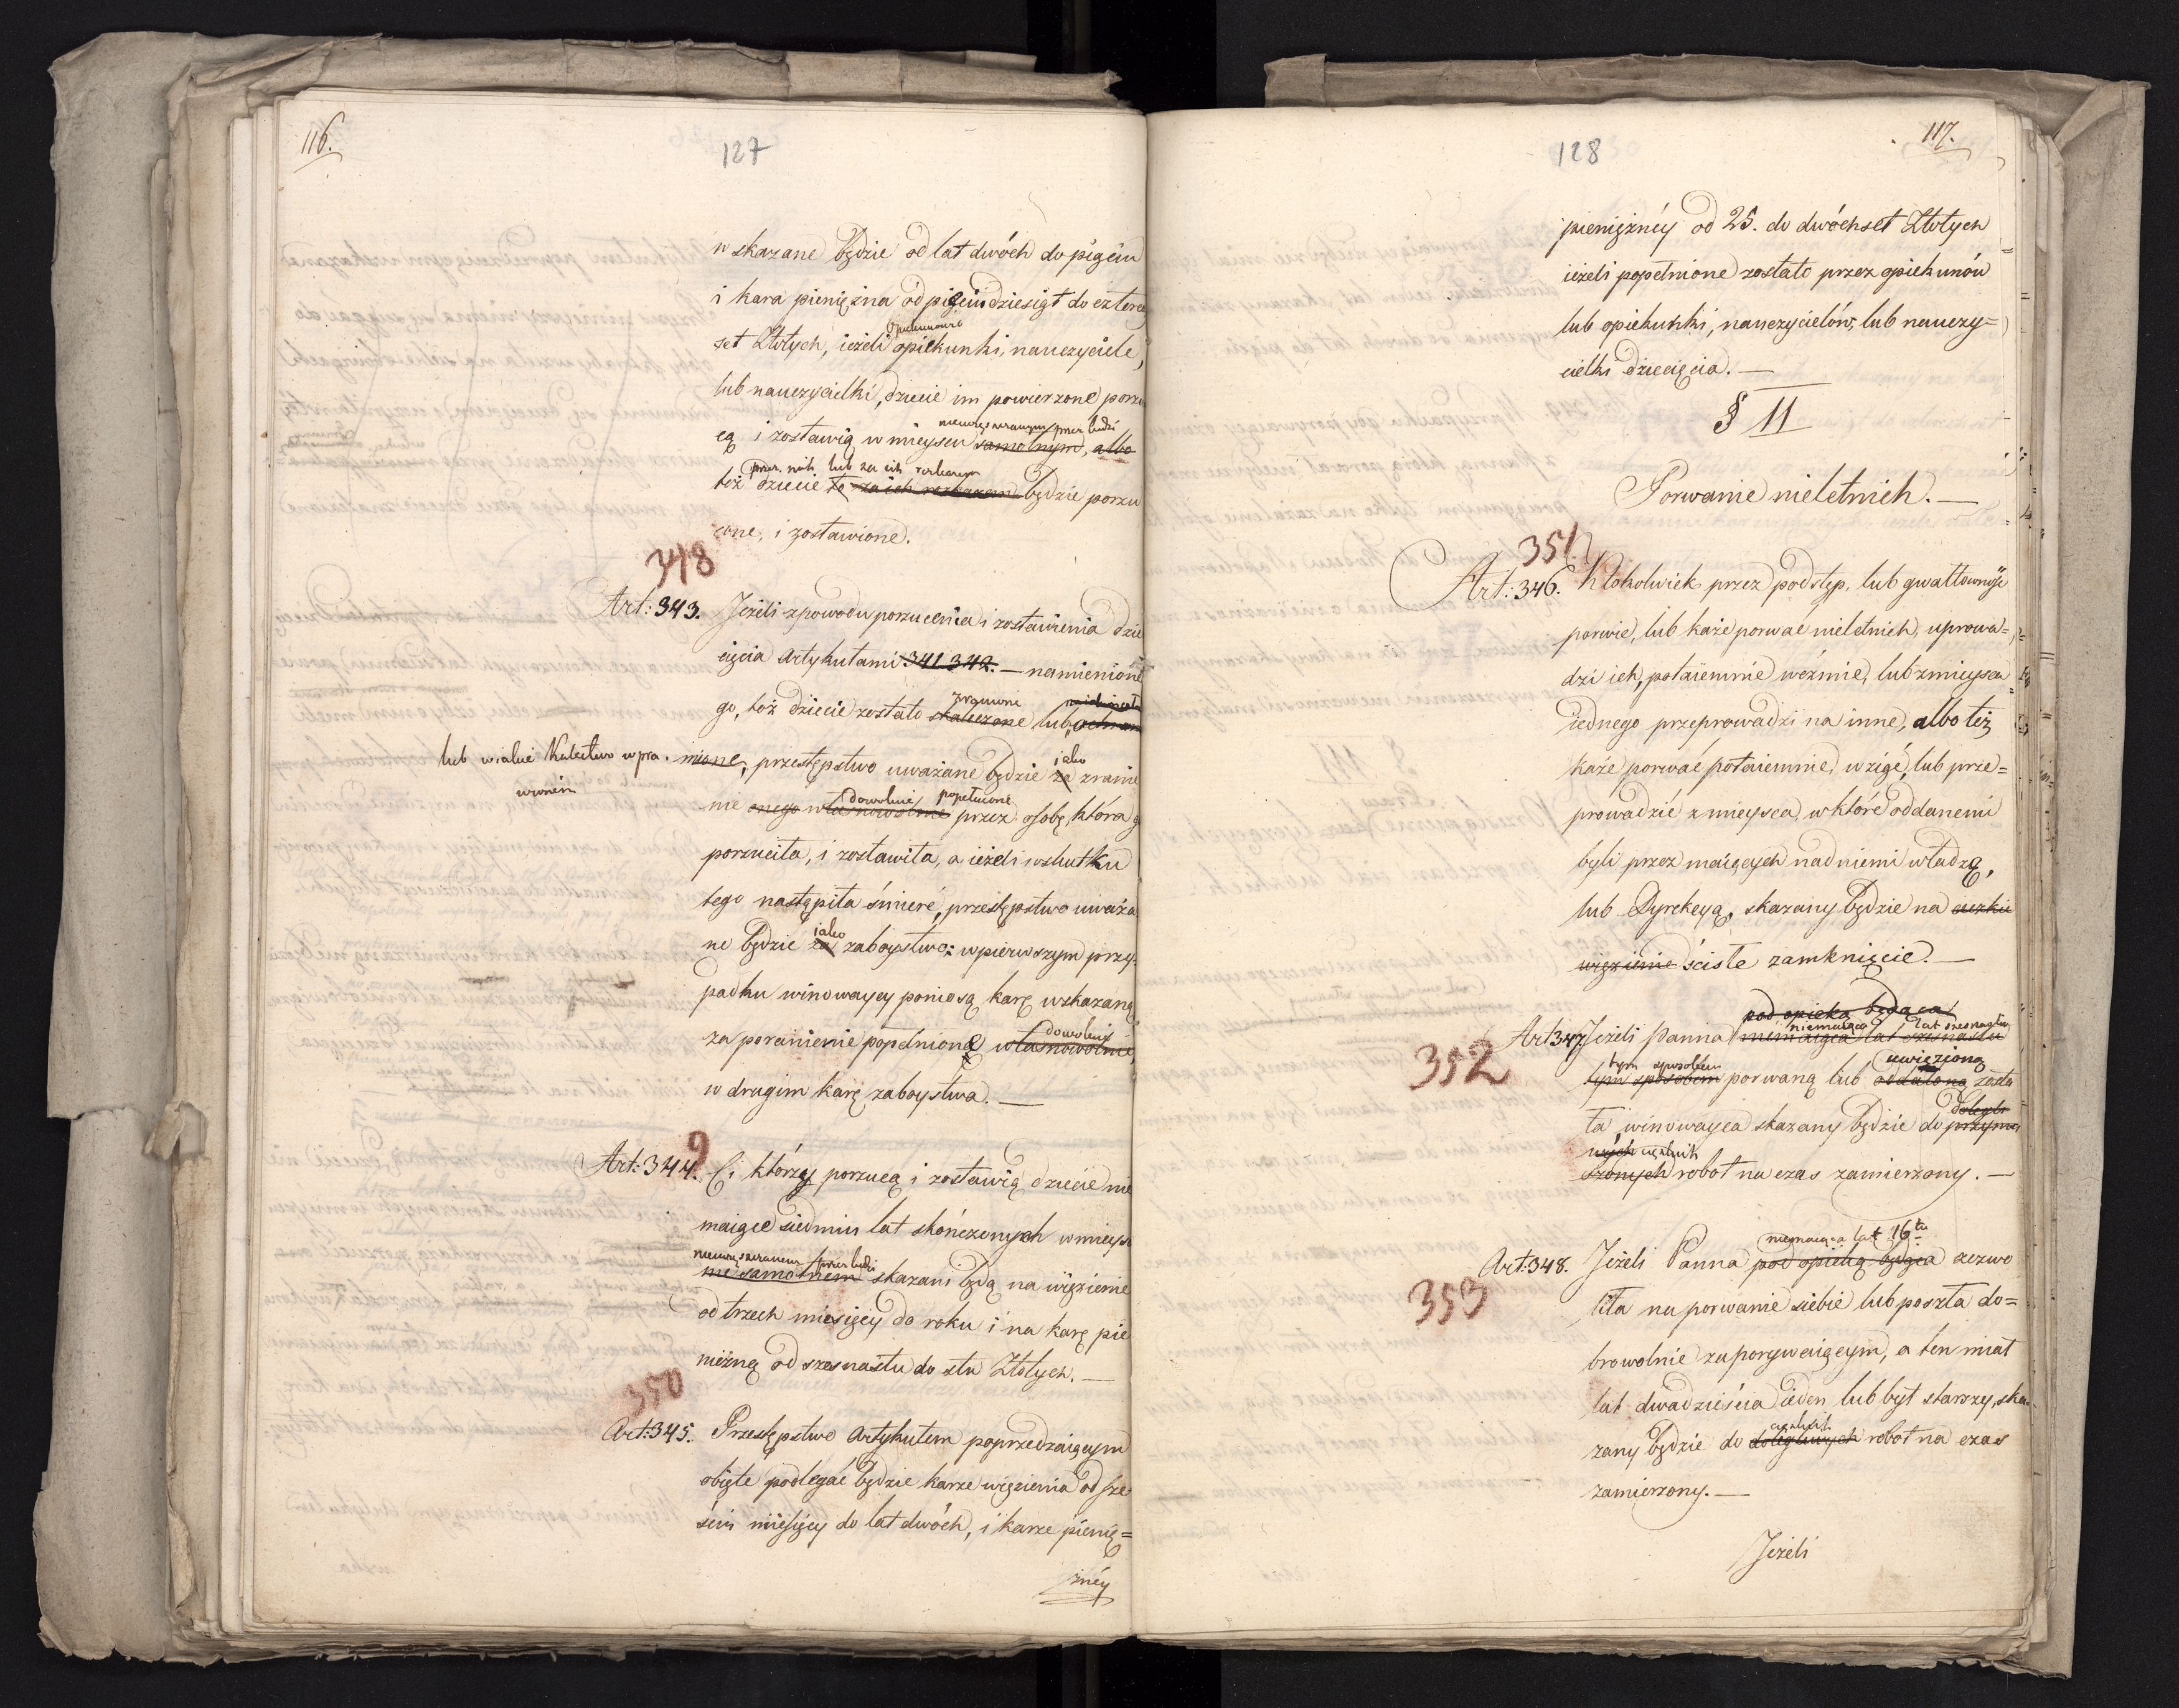 116.
127
wskazane będzie od lat dwóch do pięciu
i kara pieniężna od pięciudziesiąt do czterech
set Złotych, ieżeli opiekunki, nauczyciele,
opiekunowie
lub nauczycielki, dziecie im powierzone porzu
cą i zostawią w mieyscu samotnym, albo
nieuczęszczanym przez ludzi
też dziecie to za ich rozkazem będzie porzu
przez nich lub za ich rozkazem
cone, i zostawione.
348
Art: 343. Jeżeli z powodu porzucenia i zostawienia dzie
cięcia Artykułami 341.342. — namienione
go, toż dziecie zostało skaleczone lub
zranione
lub w iakie Kalectwo wpra.
wionem
mione, przestępstwo uważane będzie za zranie
iako
nie onego własnowolnie przez osobę, która g
dowolnie popełnione
porzuciła, i zostawiła, a ieżeli wskutku
tego nastąpiła śmierć, przestępstwo uważa
ne będzie za zaboystwo: w pierwszym przy-
iako
padku winowaycy poniosą karę wskazaną
za poranienie popełnione własnowolnie,
dowolnie
w drugim karę zaboystwa. —
9
Art: 344. Ci którzy porzucą i zostawią dziecie nie
maiące siedmiu lat skończonych w mieys
nieuczęszczanem przez ludzi
nie samotnem skazani będą na więzienie
od trzech miesięcy do roku i na karę pie
niężną od szesnastu do stu Złotych. —
350
Art: 345. Przestępstwo Artykułem poprzedzaiącym
obięte podlegać będzie karze więzienia od sze
ściu miesięcy do lat dwóch, i karze pienię=
żnéy
117.
128
pieniężnéy od 25. do dwóchset Złotych
ieżeli popełnione zostało przez opiekunów
lub opiekunki, nauczycielów, lub nauczy=
cielki dziecięcia. —
§ II
Porwanie nieletnich. —
351.
Art: 346. Ktokolwiek przez podstęp, lub gwałtownie
porwie, lub każe porwać nieletnich, uprowa=
dzi ich, potaiemnie weźmie, lub z mieysca
iednego przeprowadzi na inne, albo też
każe porwać potaiemnie, wziąć, lub prze=
prowadzić z mieysca, w które oddanemi
byli przez maiących nad niemi władzą,
lub Dyrekcyą, skazany będzie na ciężkie
więzienie ściste zamknięcie. —
pod opieką będąca
niemaiąca lat szesnastu
Art 347 Jeżeli Panna niemaiąca lat szesnastu
352
tym sposobem uwięzioną
tym sposobem porwaną lub oddaloną zosta
ła, winowayca skazany będzie do przymu
szonych robot na czas zamierzony. —
ciężkich
niemaiąca lat 16tu
Art: 348. Jeżeli Panna pod opieką będąca zezwo
353
liła na porwanie siebie lub poszła do=
browolnie za porywaiącym, a ten miał
lat dwadzieścia ieden lub był starszy, ska
zany będzie do dolegliwych robot na czas
ciężkich
zamierzony. —
Jeżeli